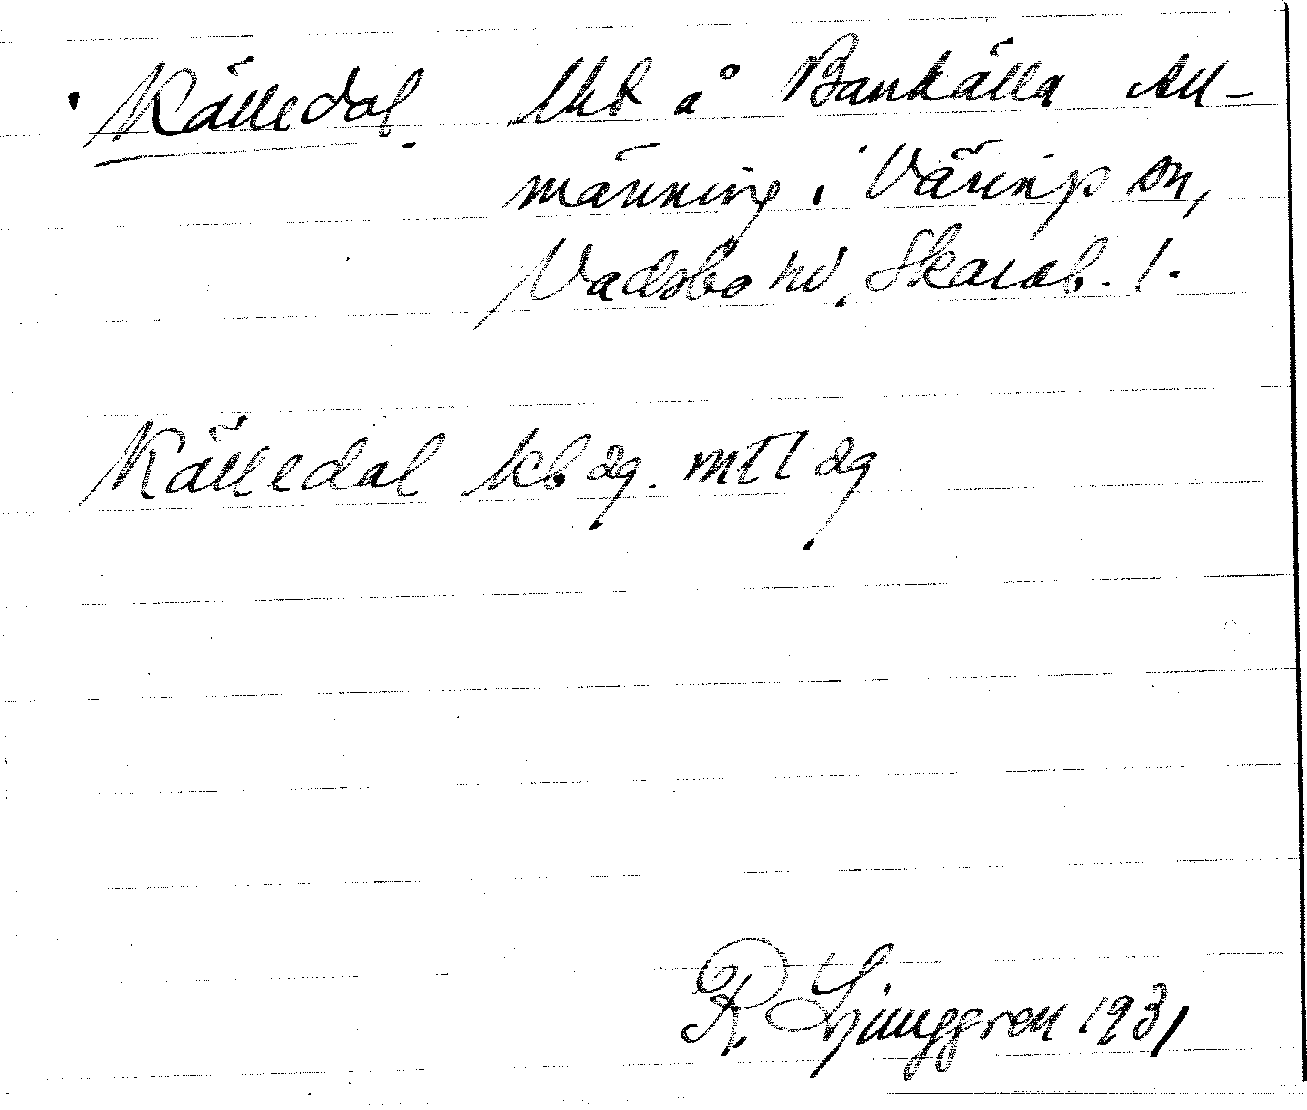 Källedal. lht å Bankälla All-
männing i Värings sn,
Vadsbo hd, Skarab. l.
Källedal kb äg. mtl äg
R Ljunggren 1931